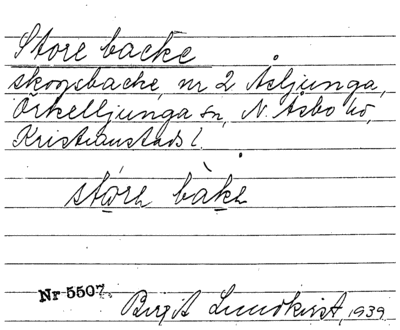 Store backe
skogsbacke, nr 2 Åsljunga,
Örkelljunga sn, N. Åsbo hd,
Kristianstads l.
stóre bàke
Nr 5507.
Birgit Lundkvist, 1939